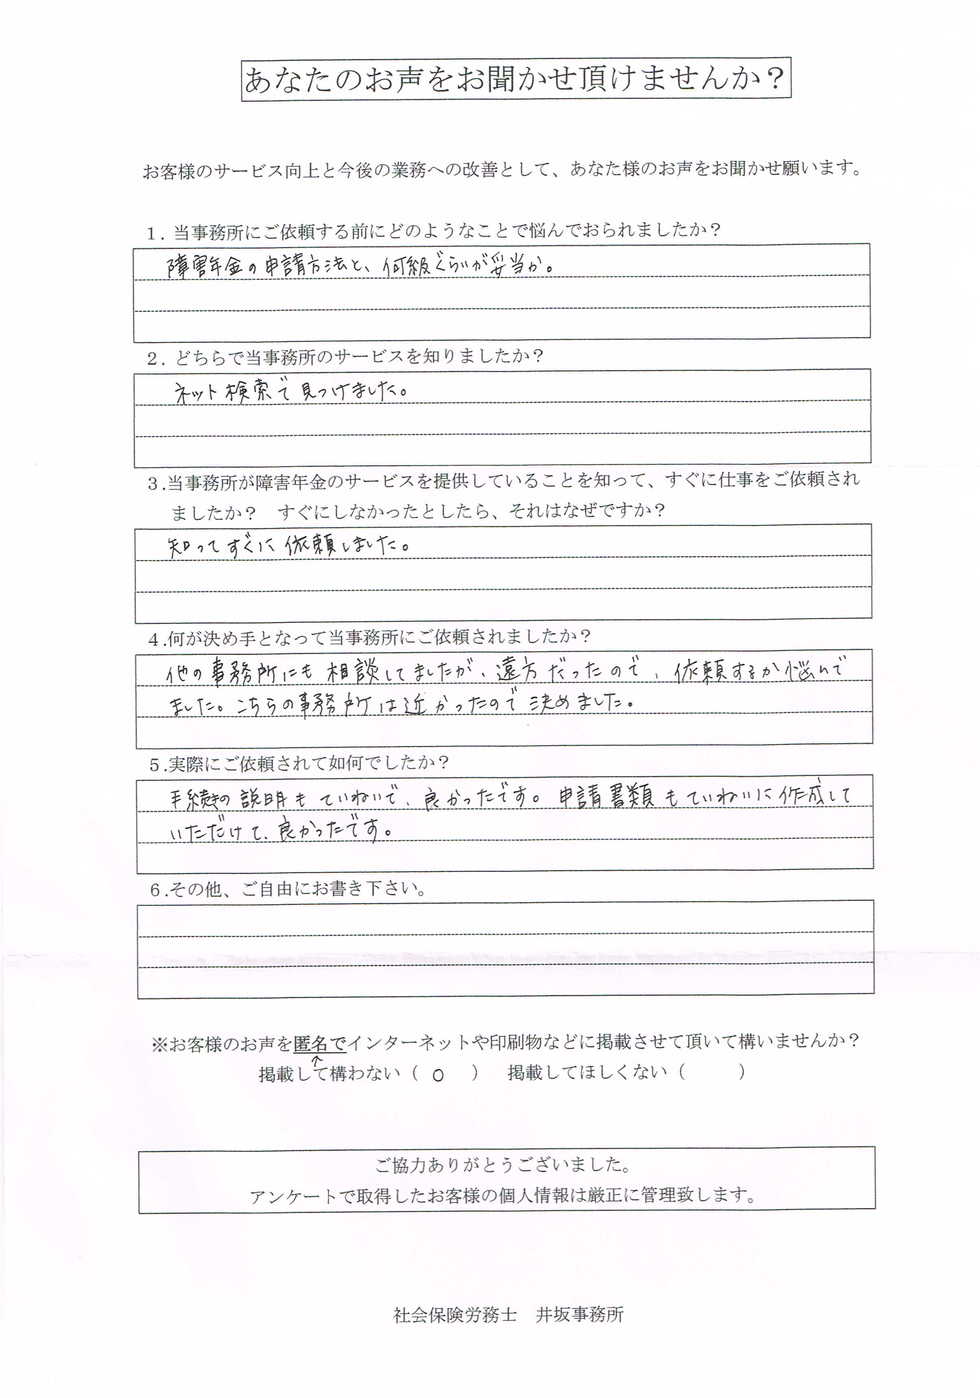 あなたのお声をお聞かせ頂けませんか？
お客様のサービス向上と今後の業務への改善として、あなた様のお声をお聞かせ願います。
１．当事務所にご依頼する前にどのようなことで悩んでおられましたか？
障害年金の申請方法と、何級ぐらいが妥当か。
２．どちらで当事務所のサービスを知りましたか？
ネット検索で見つけました。
３.当事務所が障害年金のサービスを提供していることを知って、すぐに仕事をご依頼され
ましたか？　すぐにしなかったとしたら、それはなぜですか？
知ってすぐに依頼しました。
４.何が決め手となって当事務所にご依頼されましたか？
他の事務所にも相談してましたが、遠方だったので、依頼するか悩んで
ました。こちらの事務所は近かったので決めました。
５.実際にご依頼されて如何でしたか？
手続きの説明もていねいで、良かったです。申請書類もていねいに作成して
いただけて、良かったです。
６.その他、ご自由にお書き下さい。
※お客様のお声を匿名でインターネットや印刷物などに掲載させて頂いて構いませんか？
掲載して構わない（　○　）　掲載してほしくない（　　　）
ご協力ありがとうございました。
アンケートで取得したお客様の個人情報は厳正に管理致します。
社会保険労務士　井坂事務所